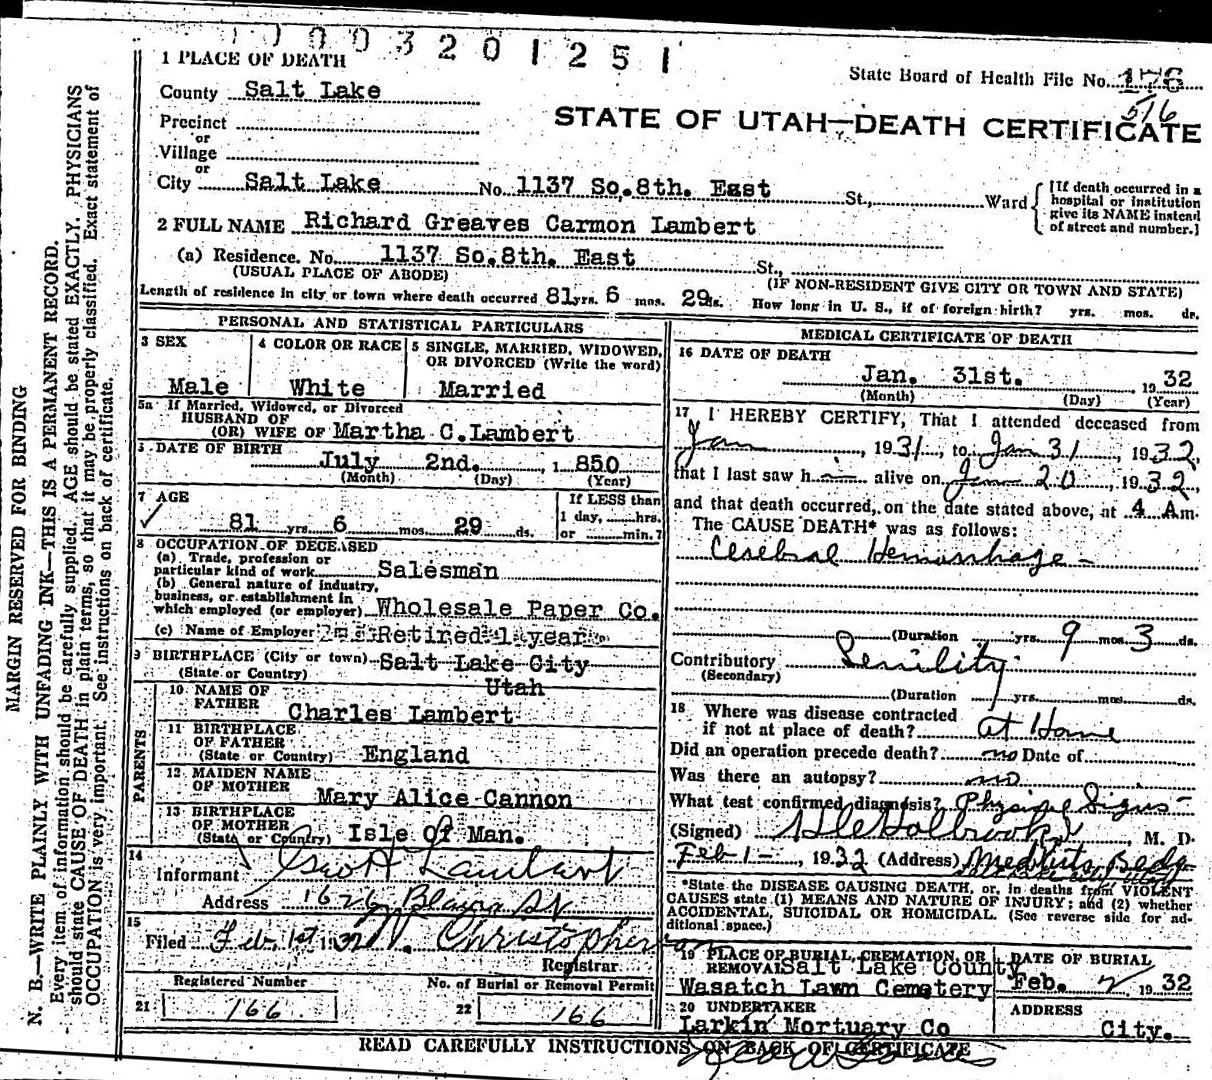 0003201251
1 PLACE OF DEATH
State Board of Health File No. 176
516
County Salt Lake
STATE OF UTAH—DEATH CERTIFICATE
Precinct
or
Village
or
City Salt Lake No. 1137 So.8th. East St., Ward
[If death occurred in a
hospital or institution
give its NAME instead
of street and number.]
2 FULL NAME Richard Greaves Carmon Lambert
(a) Residence. No. 1137 So.8th. East St.,
(USUAL PLACE OF ABODE)
(IF NON-RESIDENT GIVE CITY OR TOWN AND STATE)
Length of residence in city or town where death occurred 81 yrs. 6 mos. 29 ds. How long in U. S., if of foreign birth? yrs. mos. ds.
PERSONAL AND STATISTICAL PARTICULARS
3 SEX
Male
4 COLOR OR RACE
White
5 SINGLE, MARRIED, WIDOWED,
OR DIVORCED (Write the word)
Married
5a If Married, Widowed, or Divorced
HUSBAND OF
(OR) WIFE OF Martha C.Lambert
DATE OF BIRTH
July 2nd. 1 850
(Month) (Day) (Year)
7 AGE
81 yrs. 6 mos. 29 ds.
If LESS than
1 day, hrs.
or min.?
8 OCCUPATION OF DECEASED
(a) Trade, profession or
particular kind of work Salesman
(b) General nature of industry,
business, or establishment in
which employed (or employer) Wholesale Paper Co.
(c) Name of Employer Retired 1 year
9 BIRTHPLACE (City or town) Salt Lake City
(State or Country) Utah
PARENTS
10 NAME OF
FATHER Charles Lambert
11 BIRTHPLACE
OF FATHER
(State or Country) England
12 MAIDEN NAME
OF MOTHER Mary Alice Cannon
13 BIRTHPLACE
OF MOTHER
(State or Country) Isle Of Man.
14
Informant Geo H Lambert
Address 1626 Blaine
15
Filed Feb. 1st 1932 Christopherson
Registrar
Registered Number
21 166
No. of Burial or Removal Permit
22 166
MEDICAL CERTIFICATE OF DEATH
16 DATE OF DEATH
Jan. 31st. 1932
(Month) (Day) (Year)
17 I HEREBY CERTIFY, That I attended deceased from
Jan 1931, to Jan 31, 1932,
that I last saw h alive on Jan 20, 1932,
and that death occurred, on the date stated above, at 4 A m.
The CAUSE DEATH* was as follows:
Cerebral Hemorrhage -
(Duration yrs. 9 mos. 3 ds.
Contributory Senility.
(Secondary)
(Duration yrs. mos. ds.
18 Where was disease contracted
if not at place of death? at Home
Did an operation precede death? no Date of
Was there an autopsy? no
What test confirmed diagnosis? Physical Signs -
(Signed) Holbrook, M. D.
Feb 1 -, 1932 (Address)
*State the DISEASE CAUSING DEATH, or, in deaths from VIOLENT
CAUSES state (1) MEANS AND NATURE OF INJURY; and (2) whether
ACCIDENTAL, SUICIDAL OR HOMICIDAL. (See reverse side for ad-
ditional space.)
19 PLACE OF BURIAL, CREMATION, OR
REMOVAL Salt Lake County
Wasatch Lawn Cemetery
DATE OF BURIAL
Feb. 2 1932
20 UNDERTAKER
Larkin Mortuary Co
ADDRESS
City.
READ CAREFULLY INSTRUCTIONS ON BACK OF CERTIFICATE
MARGIN RESERVED FOR BINDING
N. B.—WRITE PLAINLY WITH UNFADING INK—THIS IS A PERMANENT RECORD.
Every item of information should be carefully supplied. AGE should be stated EXACTLY. PHYSICIANS
should state CAUSE OF DEATH in plain terms, so that it may be properly classified. Exact statement of
OCCUPATION is very important. See instructions on back of certificate.